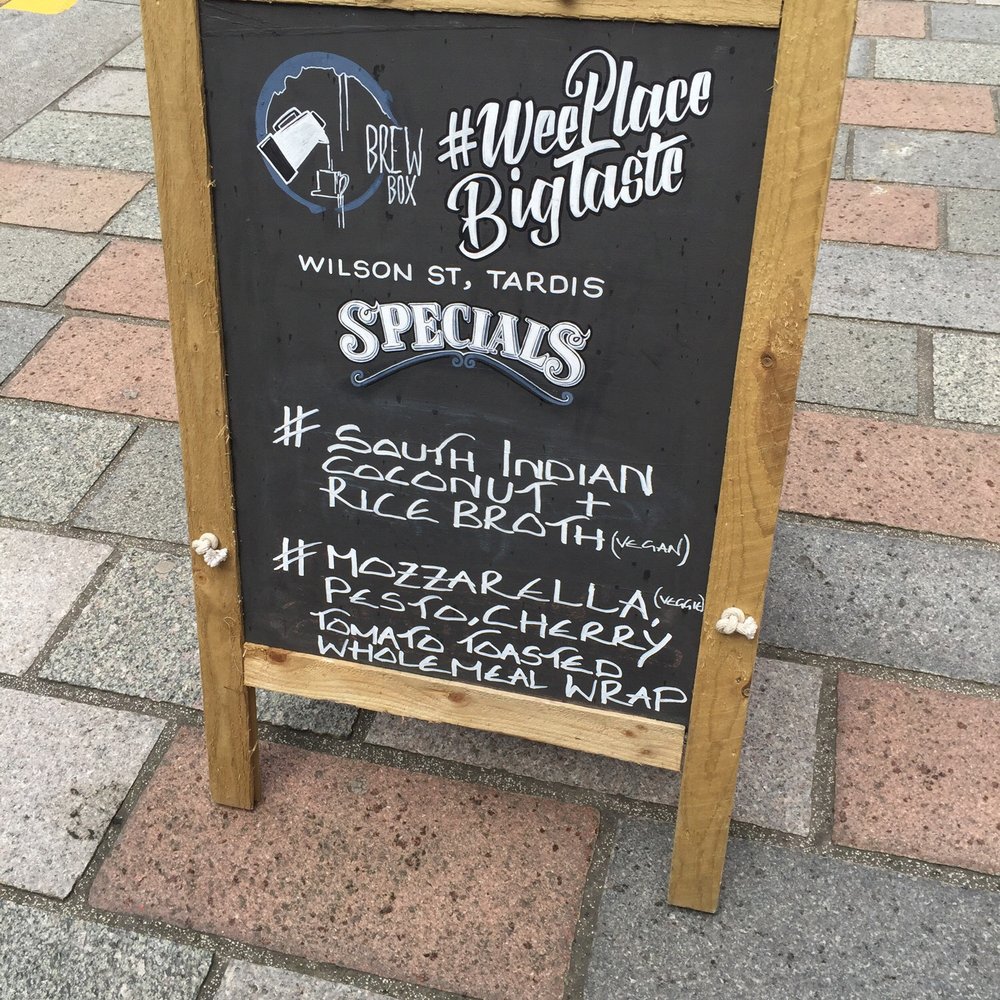 BREW
BOX
#WeePlace
BigTaste
WILSON ST, TARDIS
SPECIALS
# SOUTH INDIAN
COCONUT +
RICE BROTH (VEGAN)
# MOZZARELLA, (VEGGIE)
PESTO, CHERRY
TOMATO TOASTED
WHOLEMEAL WRAP